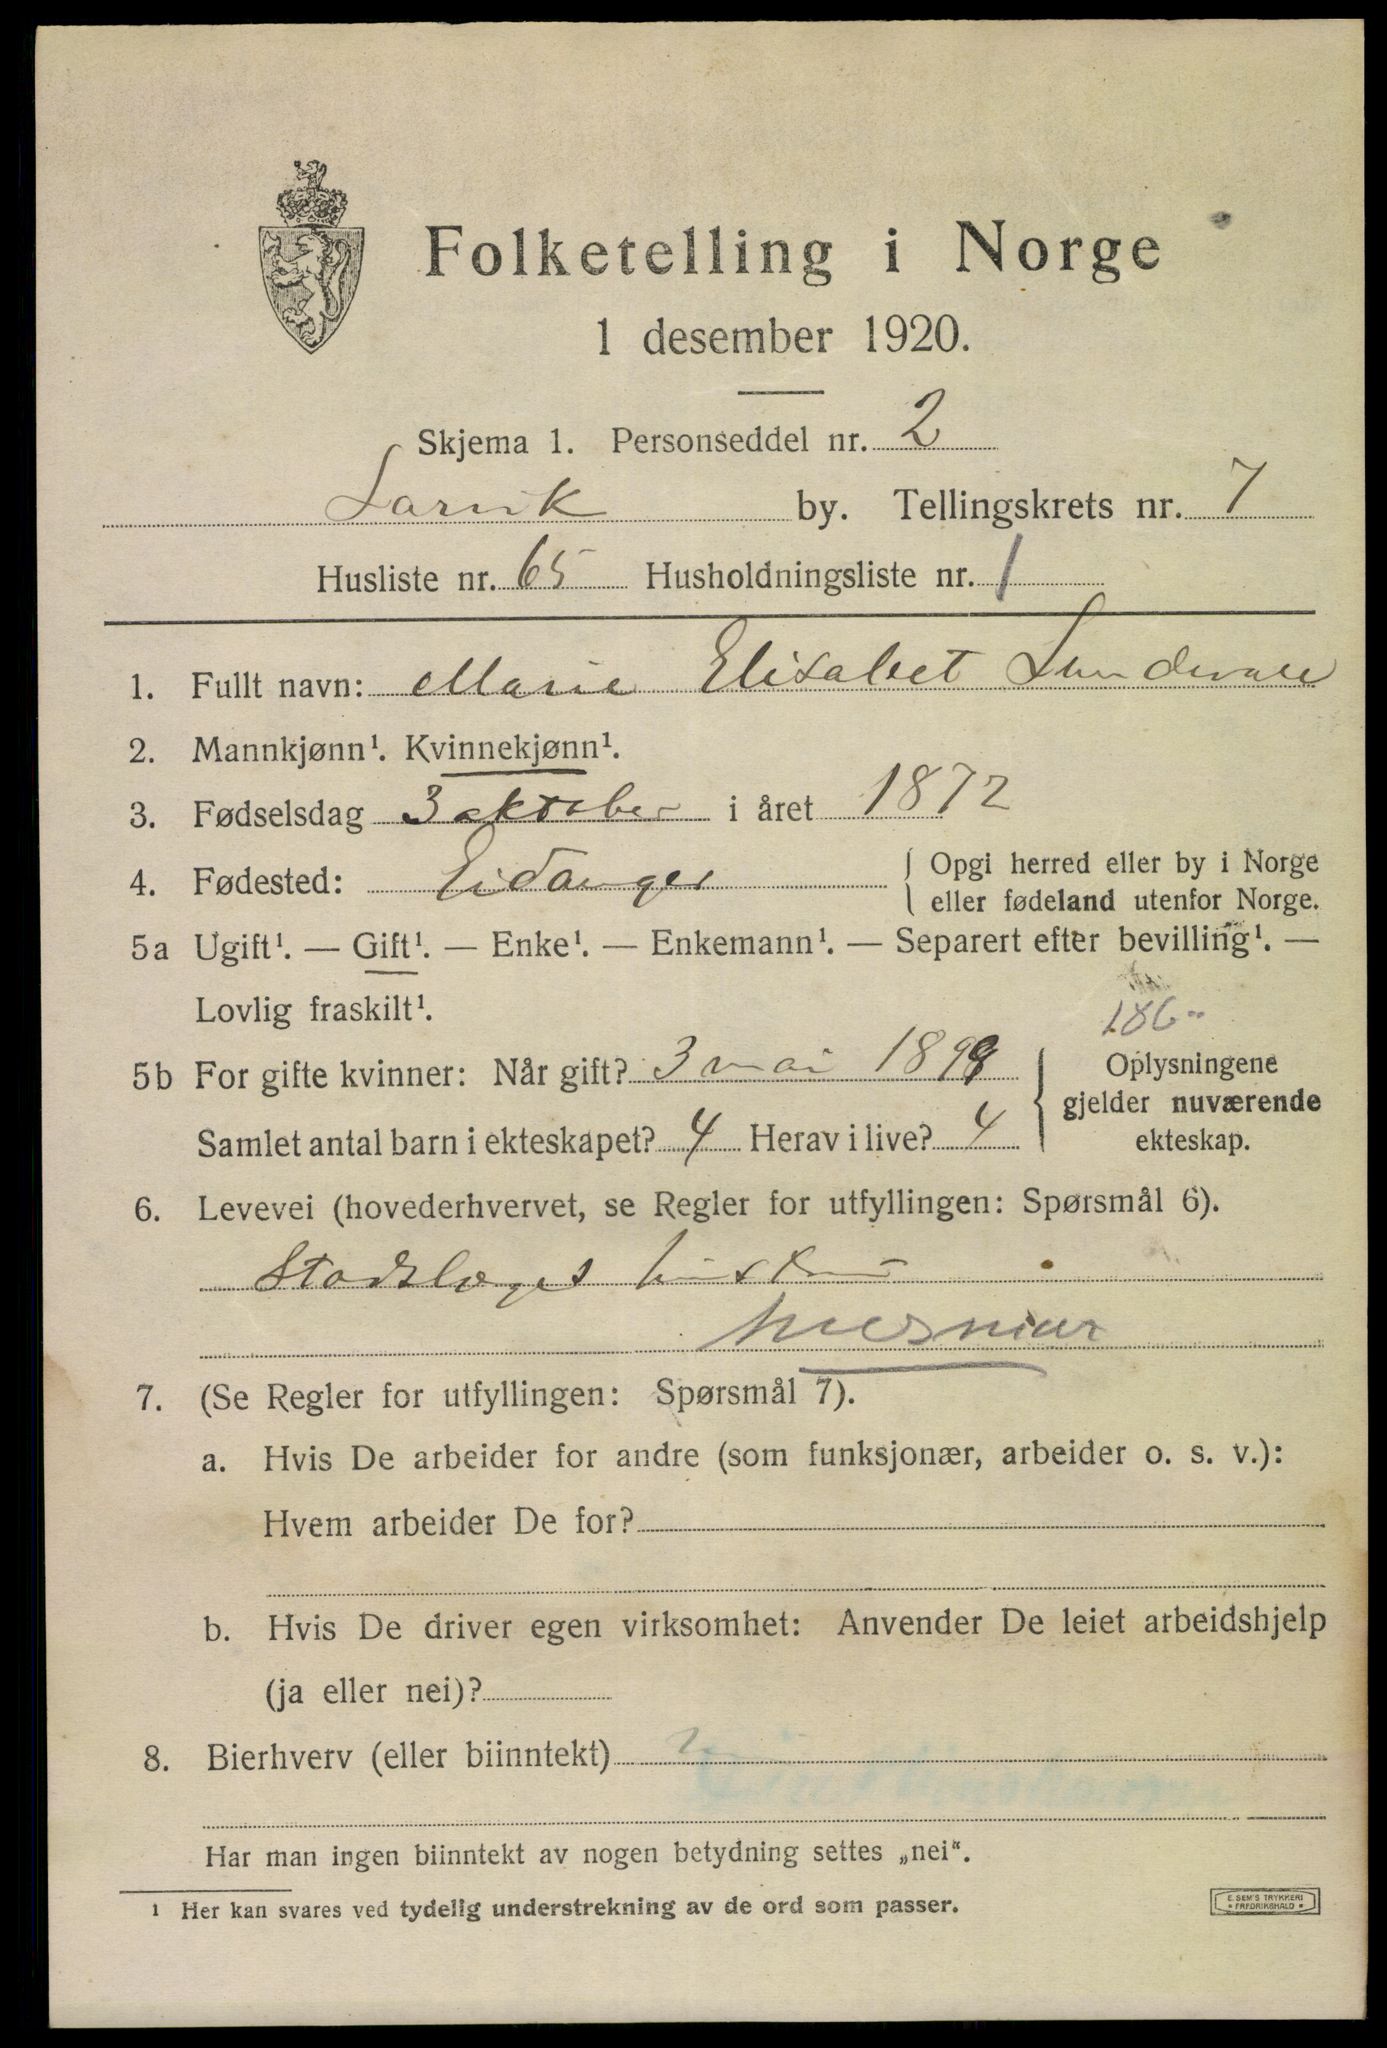 Folketelling i Norge
1 desember 1920.
Skjema 1. Personseddel nr. 2
Larvik by. Tellingskrets nr. 7
Husliste nr. 65 Husholdningsliste nr. 1
1. Fullt navn: Marie Elisabet Lundevall
2. Mannkjønn¹. Kvinnekjønn¹.
3. Fødselsdag 3 oktober i året 1872
4. Fødested: Eidanger { Opgi herred eller by i Norge
eller fødeland utenfor Norge.
5a Ugift¹. — Gift¹. — Enke¹. — Enkemann¹. — Separert efter bevilling¹. —
Lovlig fraskilt¹.
186
5b For gifte kvinner: Når gift? 3 mai 1899
Samlet antal barn i ekteskapet? 4 Herav i live? 4
{ Oplysningene
gjelder nuværende
ekteskap.
6. Levevei (hovederhvervet, se Regler for utfyllingen: Spørsmål 6).
Stadslæges hustru
husmor
7. (Se Regler for utfyllingen: Spørsmål 7).
a. Hvis De arbeider for andre (som funksjonær, arbeider o. s. v.):
Hvem arbeider De for?
b. Hvis De driver egen virksomhet: Anvender De leiet arbeidshjelp
(ja eller nei)?
8. Bierhverv (eller biinntekt)
Har man ingen biinntekt av nogen betydning settes „nei“.
¹ Her kan svares ved tydelig understrekning av de ord som passer.
E. SEM'S TRYKKERI
* FREDRIKSHALD *